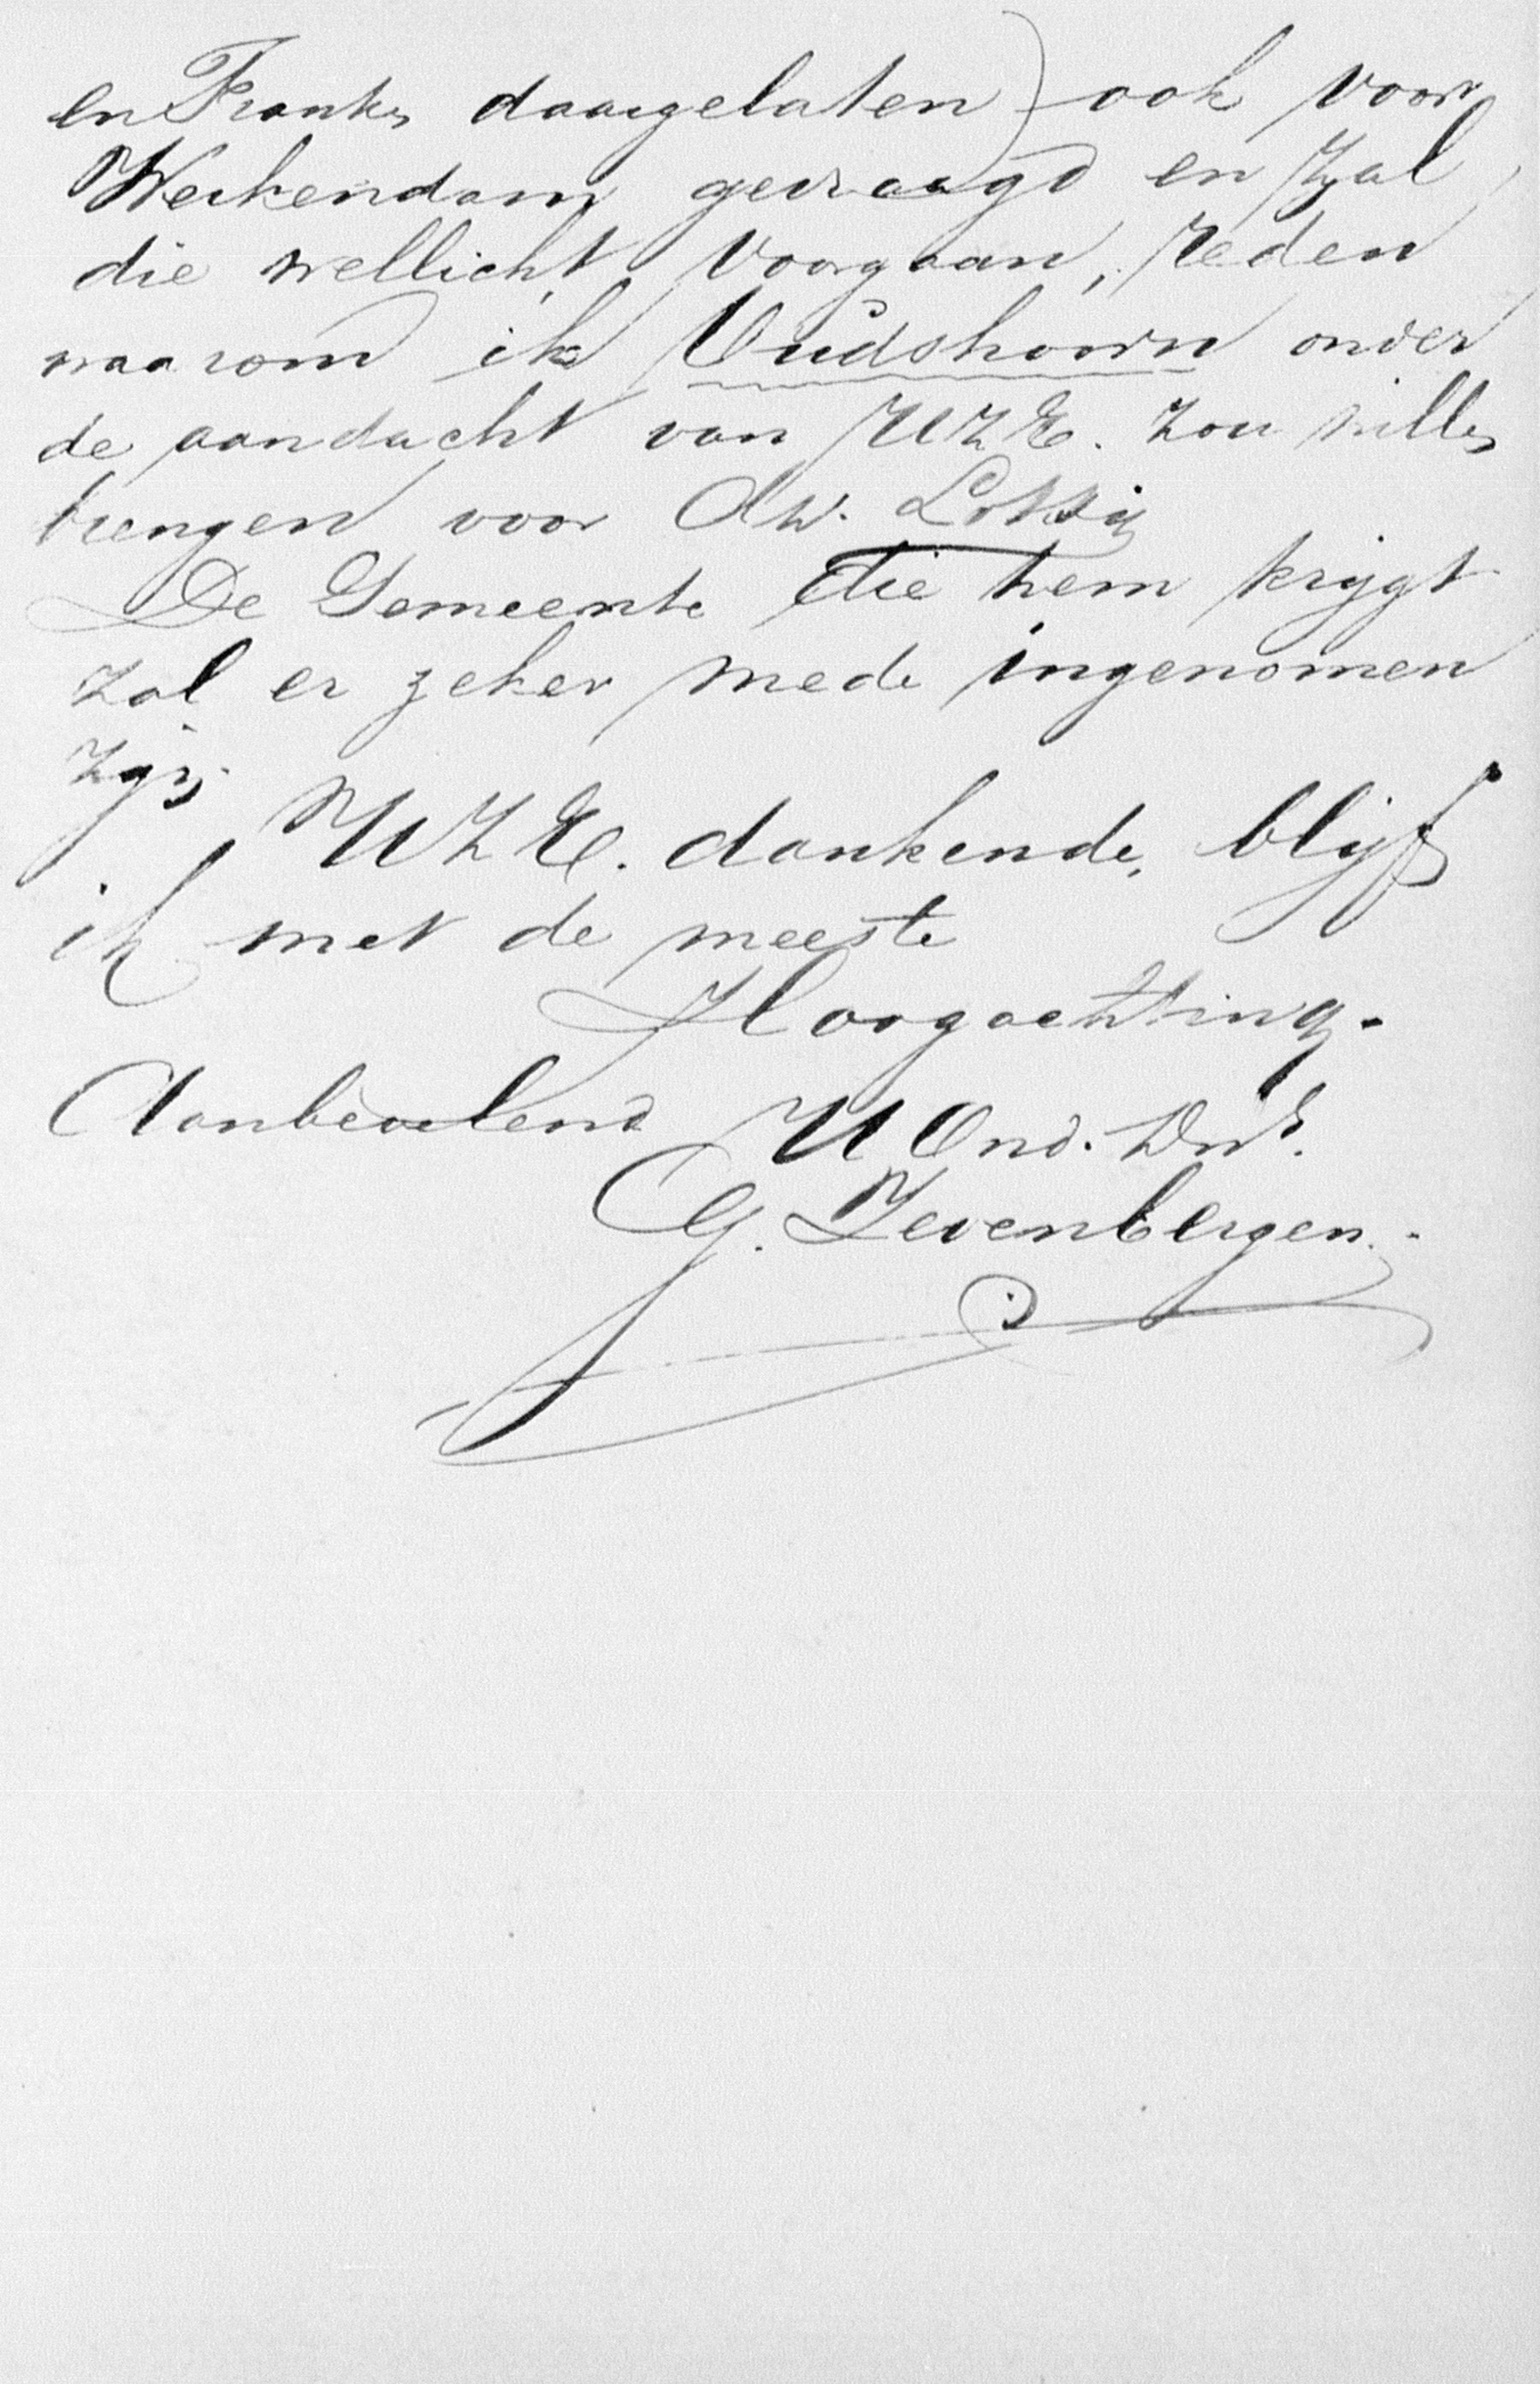 en Franks daargelaten) ook voor
Werkendam gevraagd en zal
die wellicht voorgaan, reden
waarom ik Oudshoorn onder
de aandacht van UZE. zou willen
brengen voor Dw. Lokkij
De Gemeente die hem krijgt
zal er zeker mede ingenomen
zijn.
UZE. dankende, blijf
ik met de meeste
Hoogachting.
Aanbevelend U Ond. Dnr.
G. Zevenbergen.